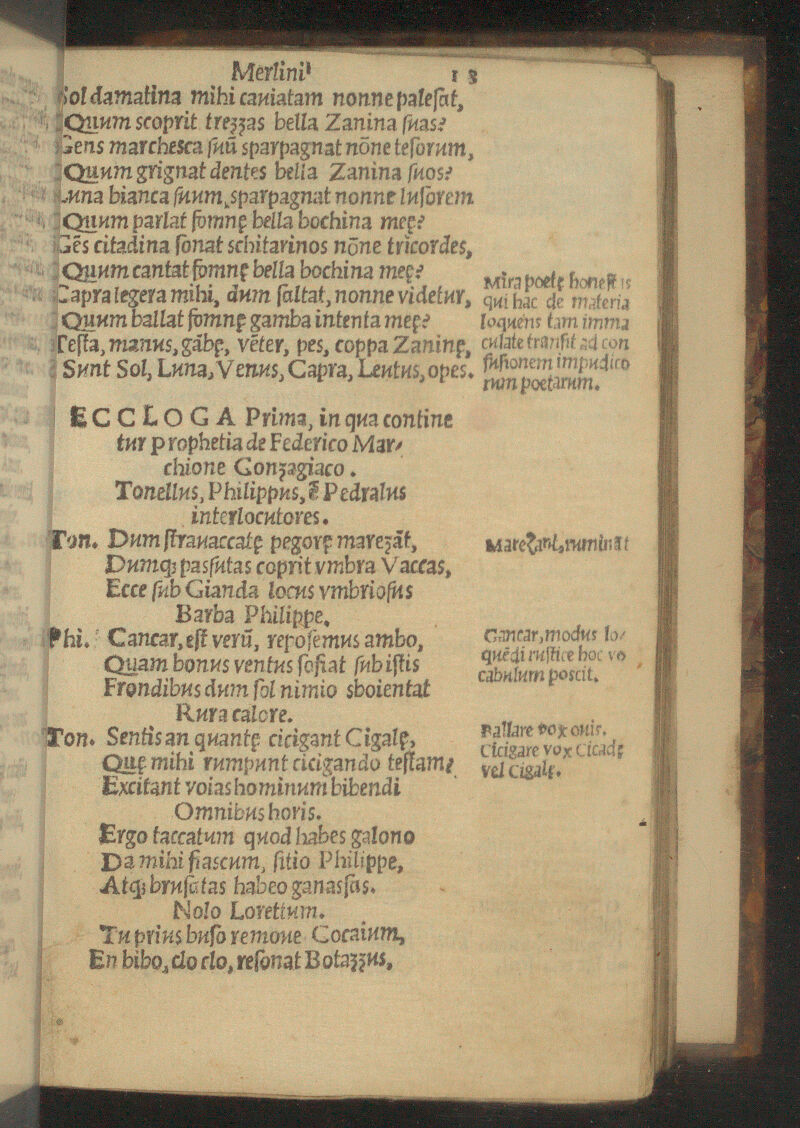 Merlini 13
Sol damatina mihi cauiatam nonne paleſat,
Quum scoprit trezzas bella Zanina ſuas?
Gens marchesca ſuũ sparpagnat nõne teſorum,
Quum grignat dentes bella Zanina ſuos?
Luna bianca ſuum sparpagnat nonne luſorem
Quum parlat ſomnę bella bochina meę?
Gẽs citadina ſonat schitarinos nõne tricordes,
Quum cantat ſomnę bella bochina meę?
Capra legera mihi, dum ſaltat, nonne videtur,
Quum ballat ſomnę gamba intenta meę?
Teſta, manus, gãbę, vẽter, pes, coppa Zaninę,
Sunt Sol, Luna, Venus, Capra, Leutus, opes.
Mira poetę honeſt is
qui hac de materia
loquens tam imma
culate tranſit ad con
fuſionem impudico
rum poetarum.
ECCLOGA Prima, in qua contine
tur prophetia de Federico Mar/
chione Gonzagiaco.
Tonellus, Philippus, & Pedralus
interlocutores.
Ton. Dum ſtrauaccatę pegorę marezãt,
Dumq; pasſutas coprit vmbra Vaccas,
Ecce ſub Gianda locus vmbrioſus
Barba Philippe,
Marezant, ruminãt
Phi. Cancar, eſt verũ, repoſemus ambo,
Quam bonus ventus ſofiat ſub iſtis
Frondibus dum ſol nimio sboientat
Rura calore.
Cancar, modus lo/
quẽdi ruſtice hoc vo
cabulum poscit.
Ton. Sentis an quantę cicigant Cigalę,
Quę mihi rumpunt cicigando teſtam?
Excitant voias hominum bibendi
Omnibus horis.
Ballare vox ouis.
Cicigare vox Cicadę
vel Cigalę.
Ergo taccatum quod habes galono
Da mihi fiascum, ſitio Philippe,
Atq; bruſatas habeo ganasſas.
Nolo Lorettum.
Tu prius buſo remoue Cocaium,
En bibo, clo clo, reſonat Botazzus,